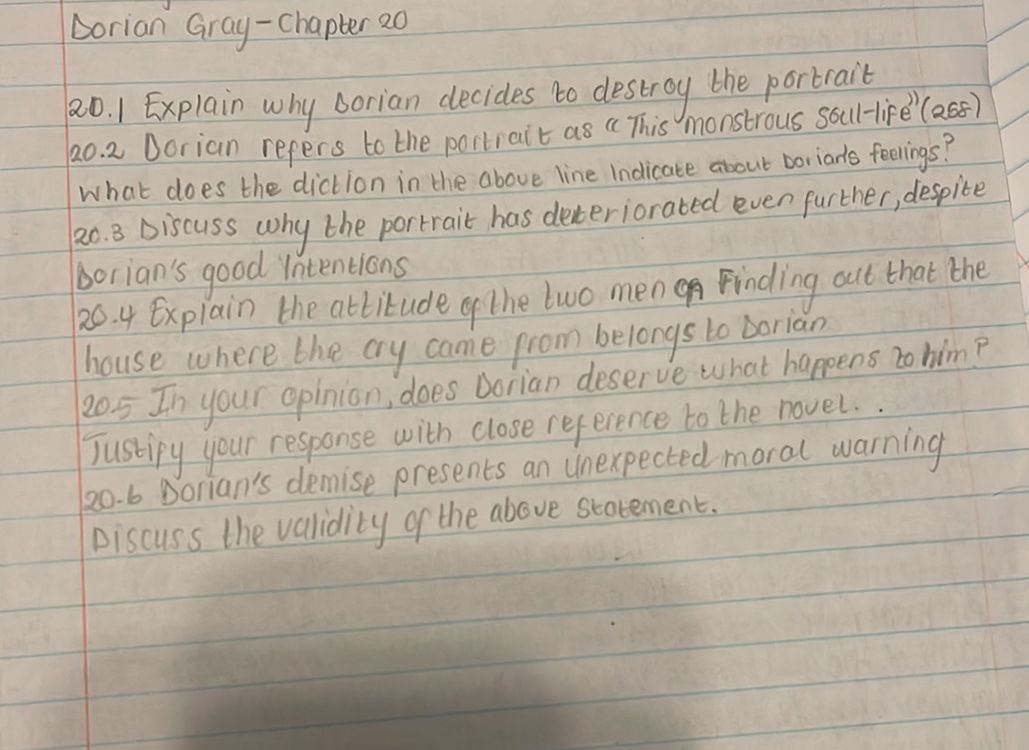 Dorian Gray-Chapter 20
20.1 Explain why Dorian decides to destroy the portrait
20.2 Dorian refers to the portrait as "This monstrous soul-life" (255)
What does the diction in the above line Indicate about Dorian's feelings?
20.3 Discuss why the portrait has deteriorated even further, despite
Dorian's good Intentions
20.4 Explain the attitude of the two men on Finding out that the
house where the cry came from belongs to Dorian
20.5 In your opinion, does Dorian deserve what happens to him?
Justify your response with close reference to the novel..
20.6 Dorian's demise presents an unexpected moral warning
Discuss the validity of the above statement.